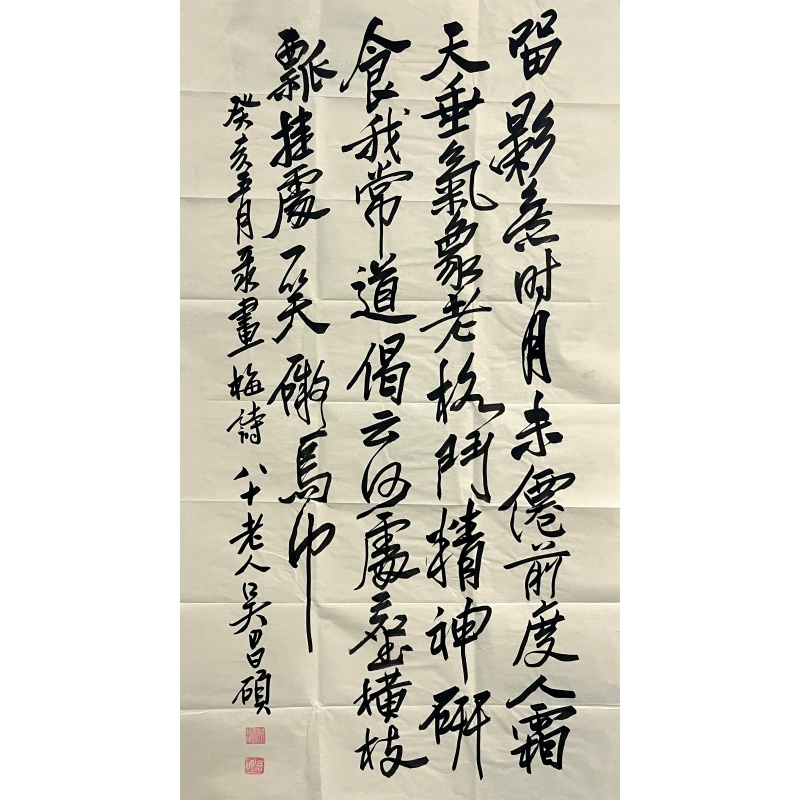 留影無时月未僊前度人霜
天垂氣象老格鬥精神研
食我常道偈云何處塵橫枝
瓢挂處一笑礙烏巾
癸亥五月录畫梅詩 八十老人吴昌碩